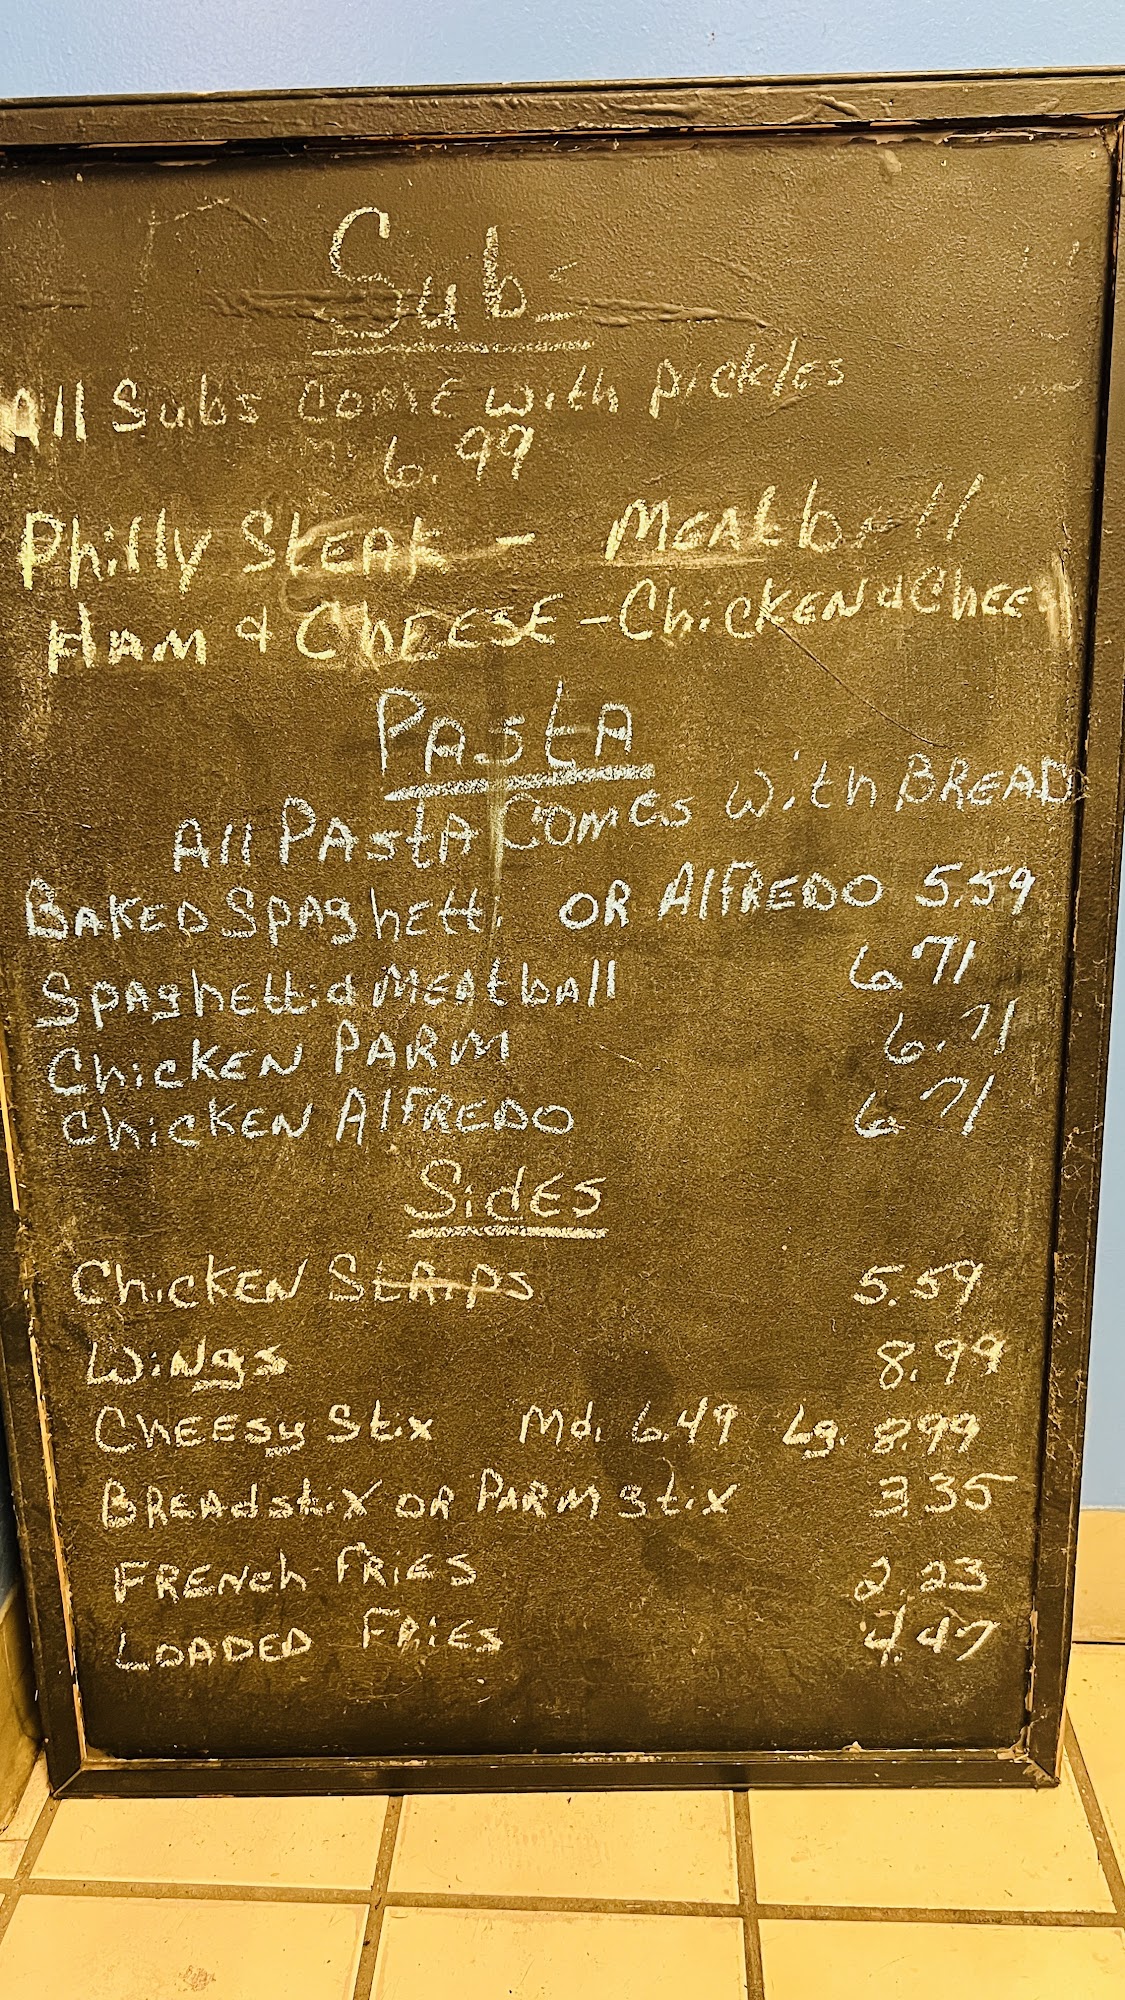 Sub
All Subs Come with pickles
6.99
Philly Steak - Meatball
Ham & Cheese - Chicken & Chee
Pasta
All Pasta Comes with BREAD
Baked Spaghetti OR Alfredo 5.59
Spaghetti & Meatball 6.71
Chicken Parm 6.71
Chicken Alfredo 6.71
Sides
Chicken Strips 5.59
Wings 8.99
Cheesy Stix Md. 6.49 Lg. 8.99
Breadstix or Parm stix 3.35
French Fries 2.23
Loaded Fries 4.47